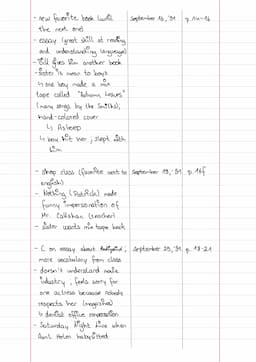 - new favorite book (until September 15, '91 p. 14-16
the next one)
- essay (great skill at reading
and understanding language)
- Bill gives him another book
- Sister is mean to boys
↳ one boy made a mix
tape called "Autumn Leaves"
(many songs by the Smiths);
hand-colored cover
↳ Asleep
↳ boy hit her; slept with
him
- shop class (favorite next to September 18, '91 p. 16f
english)
- Nothing (Patrick) made
funny impersonation of
Mr. Callahan (teacher)
- sister wants mix tape back
- C on essay about September 23, '91 p. 18-21
more vocabulary from class
- doesn't understand movie
industry, feels sorry for
one actress because nobody
respects her (magazines)
↳ dentist office
- Saturday Night Live when
Aunt Helen babysitted